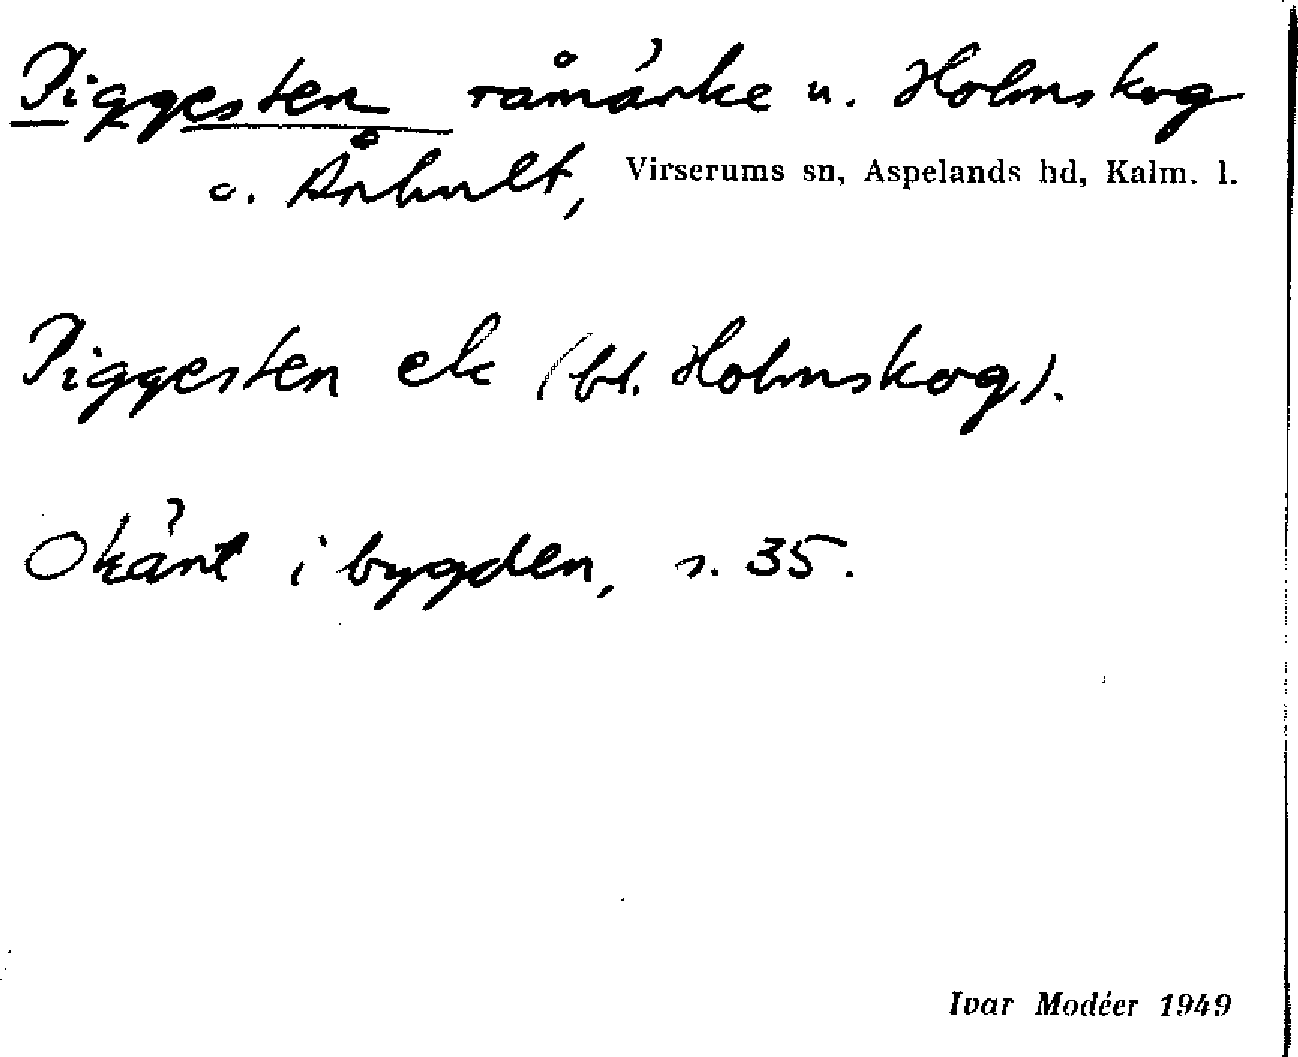 Piggesten råmärke u. Holmskog
o. Ånhult, Virserums sn, Aspelands hd, Kalm. l.
Piggesten ek (bl. Holmskog).
Okänt i bygden, s. 35.
Ivar Modéer 1949